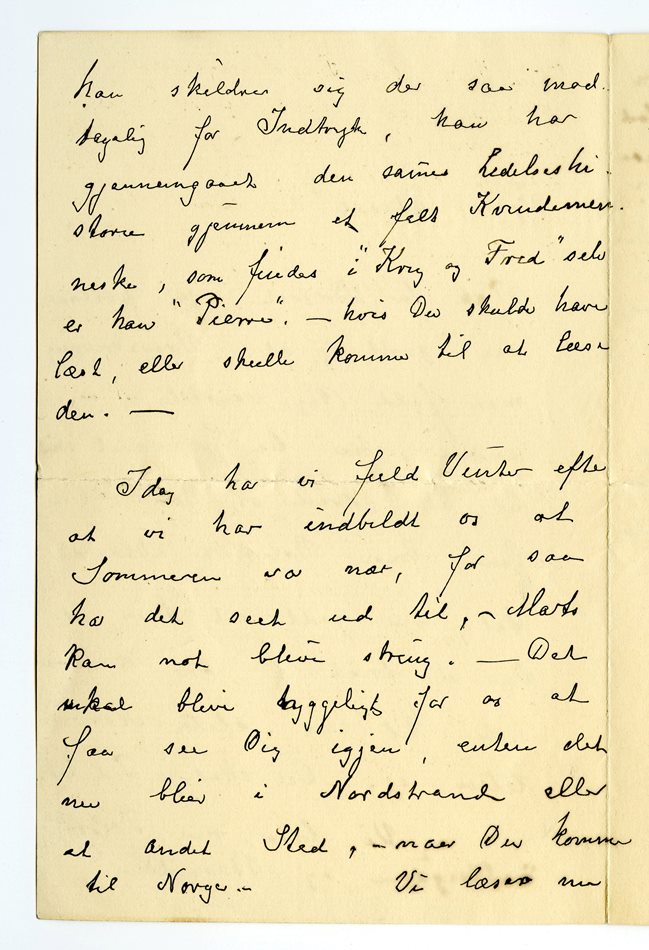 han skildrer sig der saa mod-
tagelig for Indtryk, han har
gjennemgaaet den samme Lidelseshi-
storie gjennem et falt Kvindemen-
neske, som findes i "Krig og Fred" selv
er han "Pierre". — hvis Du skulde have
læst, eller skulle komme til at læse
den. —
Idag har vi fuld Vinter efter
at vi har indbildt os at
Sommeren var nær, for saa
har det seet ud til, – Marts
kan nok blive streng. — Det
skal blive hyggeligt for os at
faa see Dig igjen, enten det
nu blier i Nordstrand eller
et andet Sted, – naar Du kommer
til Norge. – Vi læser nu